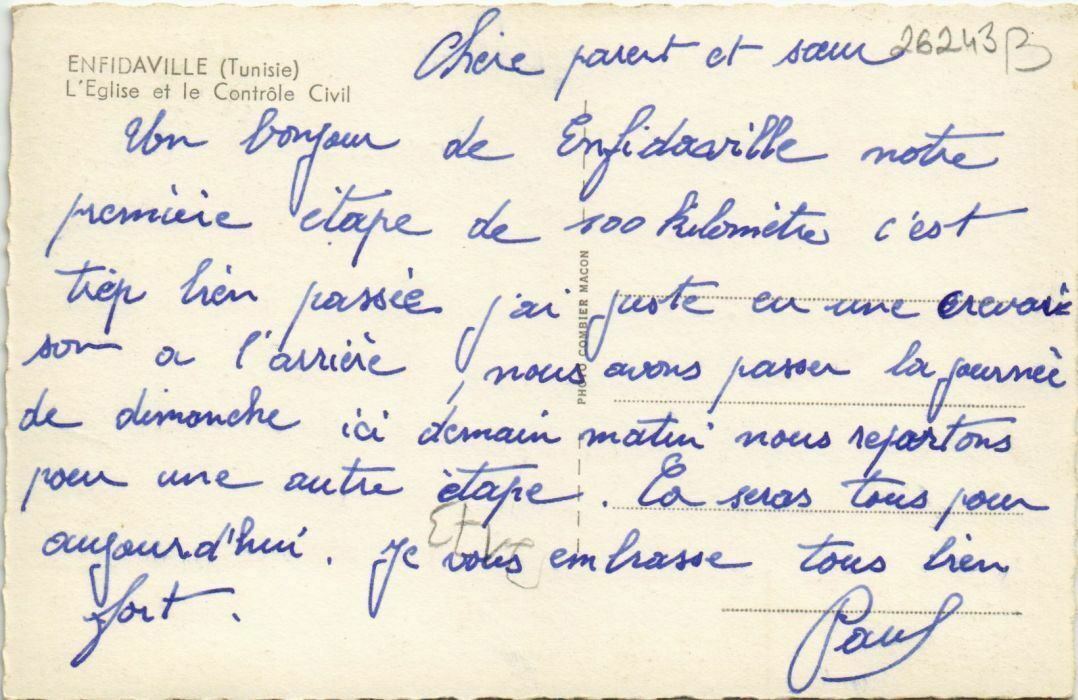 ENFIDAVILLE (Tunisie)
L'Eglise et le Contrôle Civil
26243 B
Chère parent et sœur
Un bonjour de Enfidaville notre
première étape de 100 kilomètre c'est
trép bien passée j'ai juste eu une crevai
son a l'arrière, nous avons passer la journée
de dimanche ici demain matin nous repartons
pour une autre ètape. Ca seras tous pour
aujourd'hui. Je vous embrasse tous bien
fort.
Paul
PHOTO COMBIER MACON